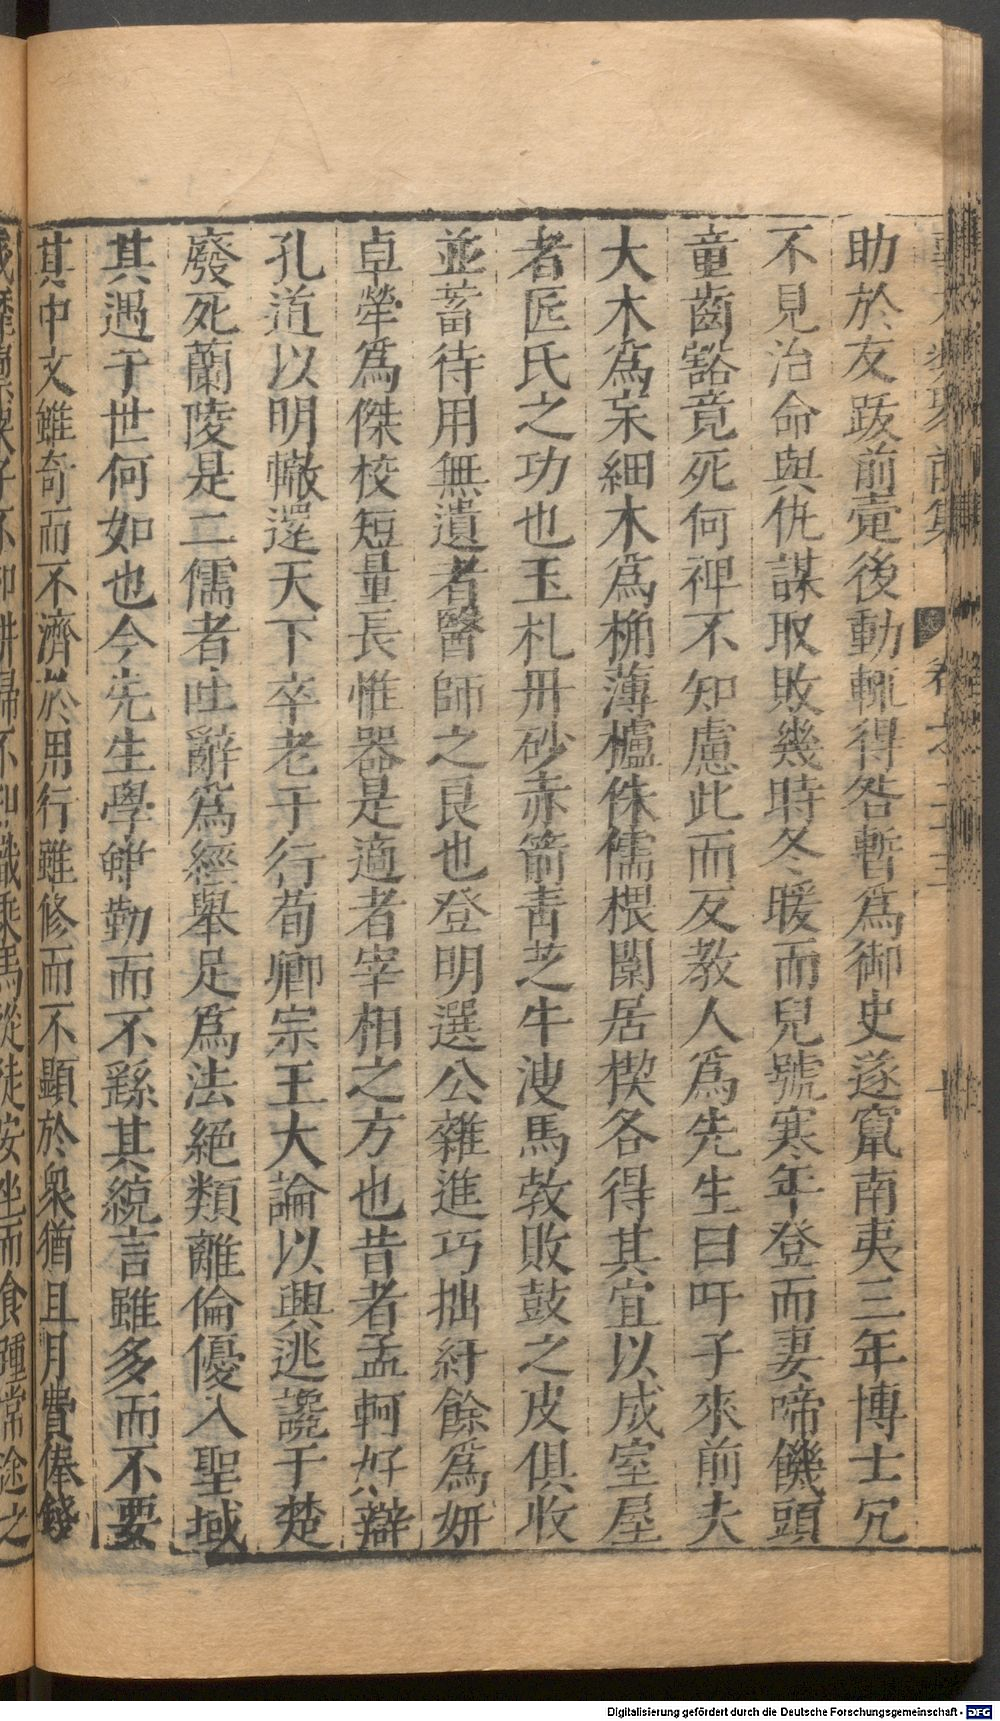 助於友跋前疐後動輒得咎暫爲御史遂竄南夷三年博士冗
不見治命與仇謀取敗幾時冬暖而兒號寒年登而妻啼饑頭
童齒豁竟死何裨不知慮此而反教人爲先生曰吁子來前夫
大木爲杗細木爲桷薄櫨侏儒椳闑居楔各得其宜以成室屋
者匠氏之功也玉札丹砂赤箭青芝牛溲馬敦敗鼓之皮俱收
並蓄待用無遺者醫師之良也登明選公雜進巧拙紆餘爲妍
卓犖爲傑校短量長惟器是適者宰相之方也昔者孟軻好辯
孔道以明轍還天下卒老于行荀卿宗王大論以興逃讒于楚
廢死蘭陵是二儒者吐辭爲經舉足爲法絕類離倫優入聖域
其遇于世何如也今先生學雖勤而不繇其統言雖多而不要
其中文雖奇而不濟於用行雖修而不顯於衆猶且月費俸錢
不知耕歸不知織乘馬從徒安坐而食踵常途之
Digitalisierung gefördert durch die Deutsche Forschungsgemeinschaft - DFG